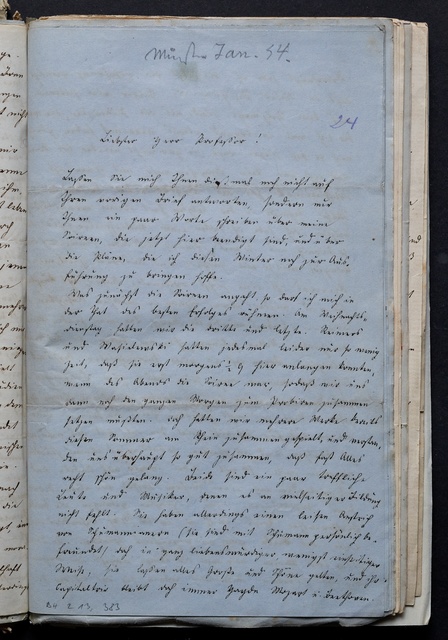 Münster Jan. 54.
24
Liebster Herr Professor!
Lassen Sie mich Ihnen diesmal noch nicht auf
Ihren vorigen Brief antworten, sondern nur
Ihnen ein paar Worte schreiben über meine
Soireen, die jetzt hier beendigt sind, und über
die Pläne, die ich diesen Winter noch zur Aus-
führung zu bringen hoffe.
Was zunächst die Soireen angeht, so darf ich mich in
der That des besten Erfolges rühmen. Am Weihnachts-
dienstag hatten wir die dritte und letzte. Reimers
und Wasielewski hatten jedesmal leider nur so wenig
Zeit, daß sie erst morgens 9 hier anlangen konnten,
wenn des Abends die Soiree war, sodaß wir uns
dann noch den ganzen Morgen zum Probiren zusammen
setzen mußten. Doch hatten wir mehrere Werke bereits
diesen Sommer am Rhein zusammen gespielt, und
uns überhaupt so gut zusammen, daß fast Alles
recht schön gelang. Beide sind ein paar treffliche
Leute und Musiker, denen es an vielseitiger Bildung
nicht fehlt. Sie haben allerdings einen leisen Anstrich
von Schumannianern (sie sind mit Schumann persönlich be-
freundet) doch in ganz liebenswürdiger, wenigst einseitiger
Weise, sie lassen alles Große und Schöne gelten, und ihr
Capitaltrio bleibt doch immer Haydn Mozart u Beethoven.